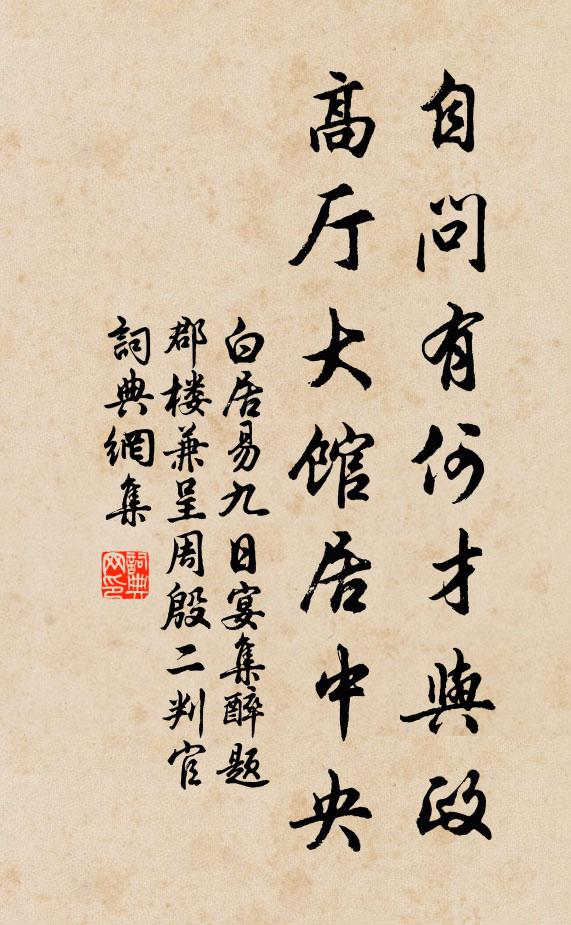 自问有何才與政
高厅大馆居中央
白居易九日宴集醉题
郡楼兼呈周殷二判官
詞典網集
詞典网印